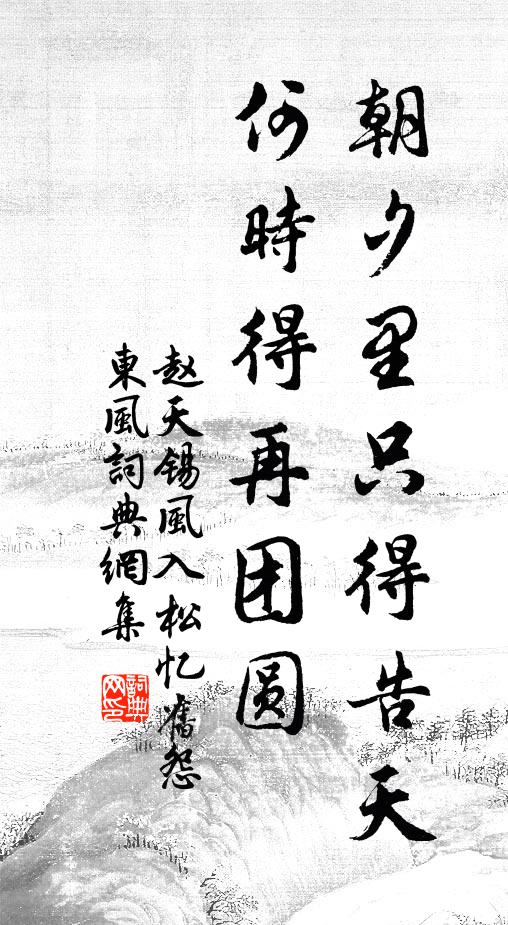 朝夕里只得告天
何時得再团圆
赵天锡風入松忆舊怨
東風詞典網集
詞典
网印